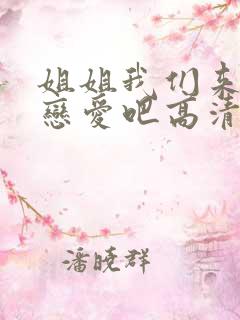 姐姐我们来
戀愛吧高清
潘晓群